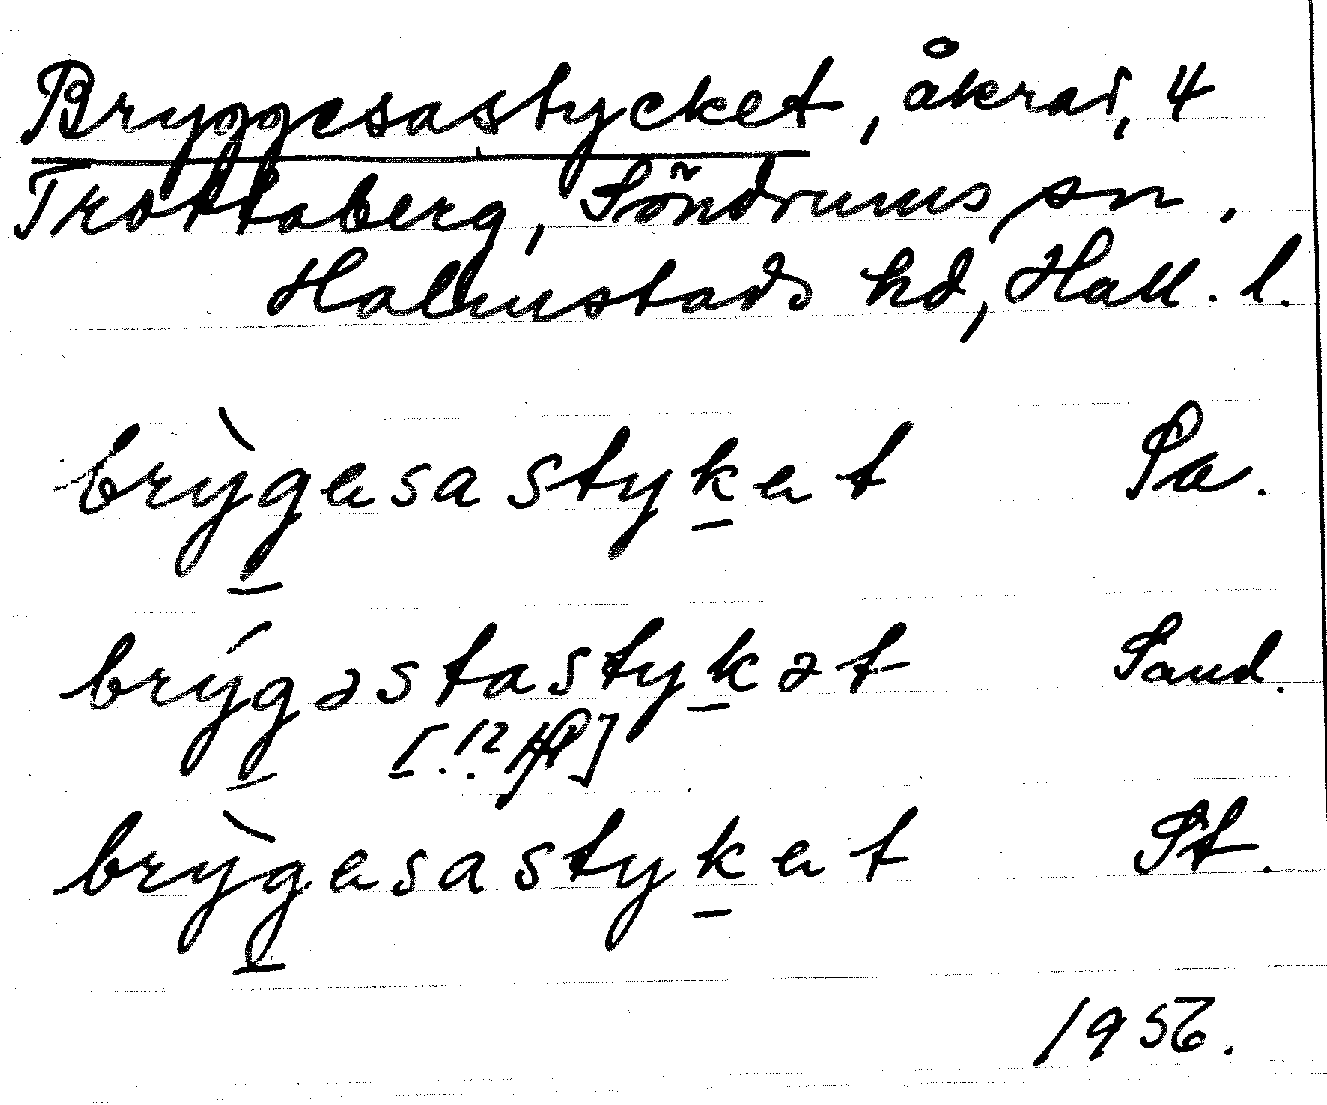 Bryggesastycket, åkrar, 4
Trottaberg, Söndrums sn.
Halmstads hd, Hall. l.
brỳgesastyket Pa.
brýgəstastykət Sand.
brỳgesastyket St.
1956.